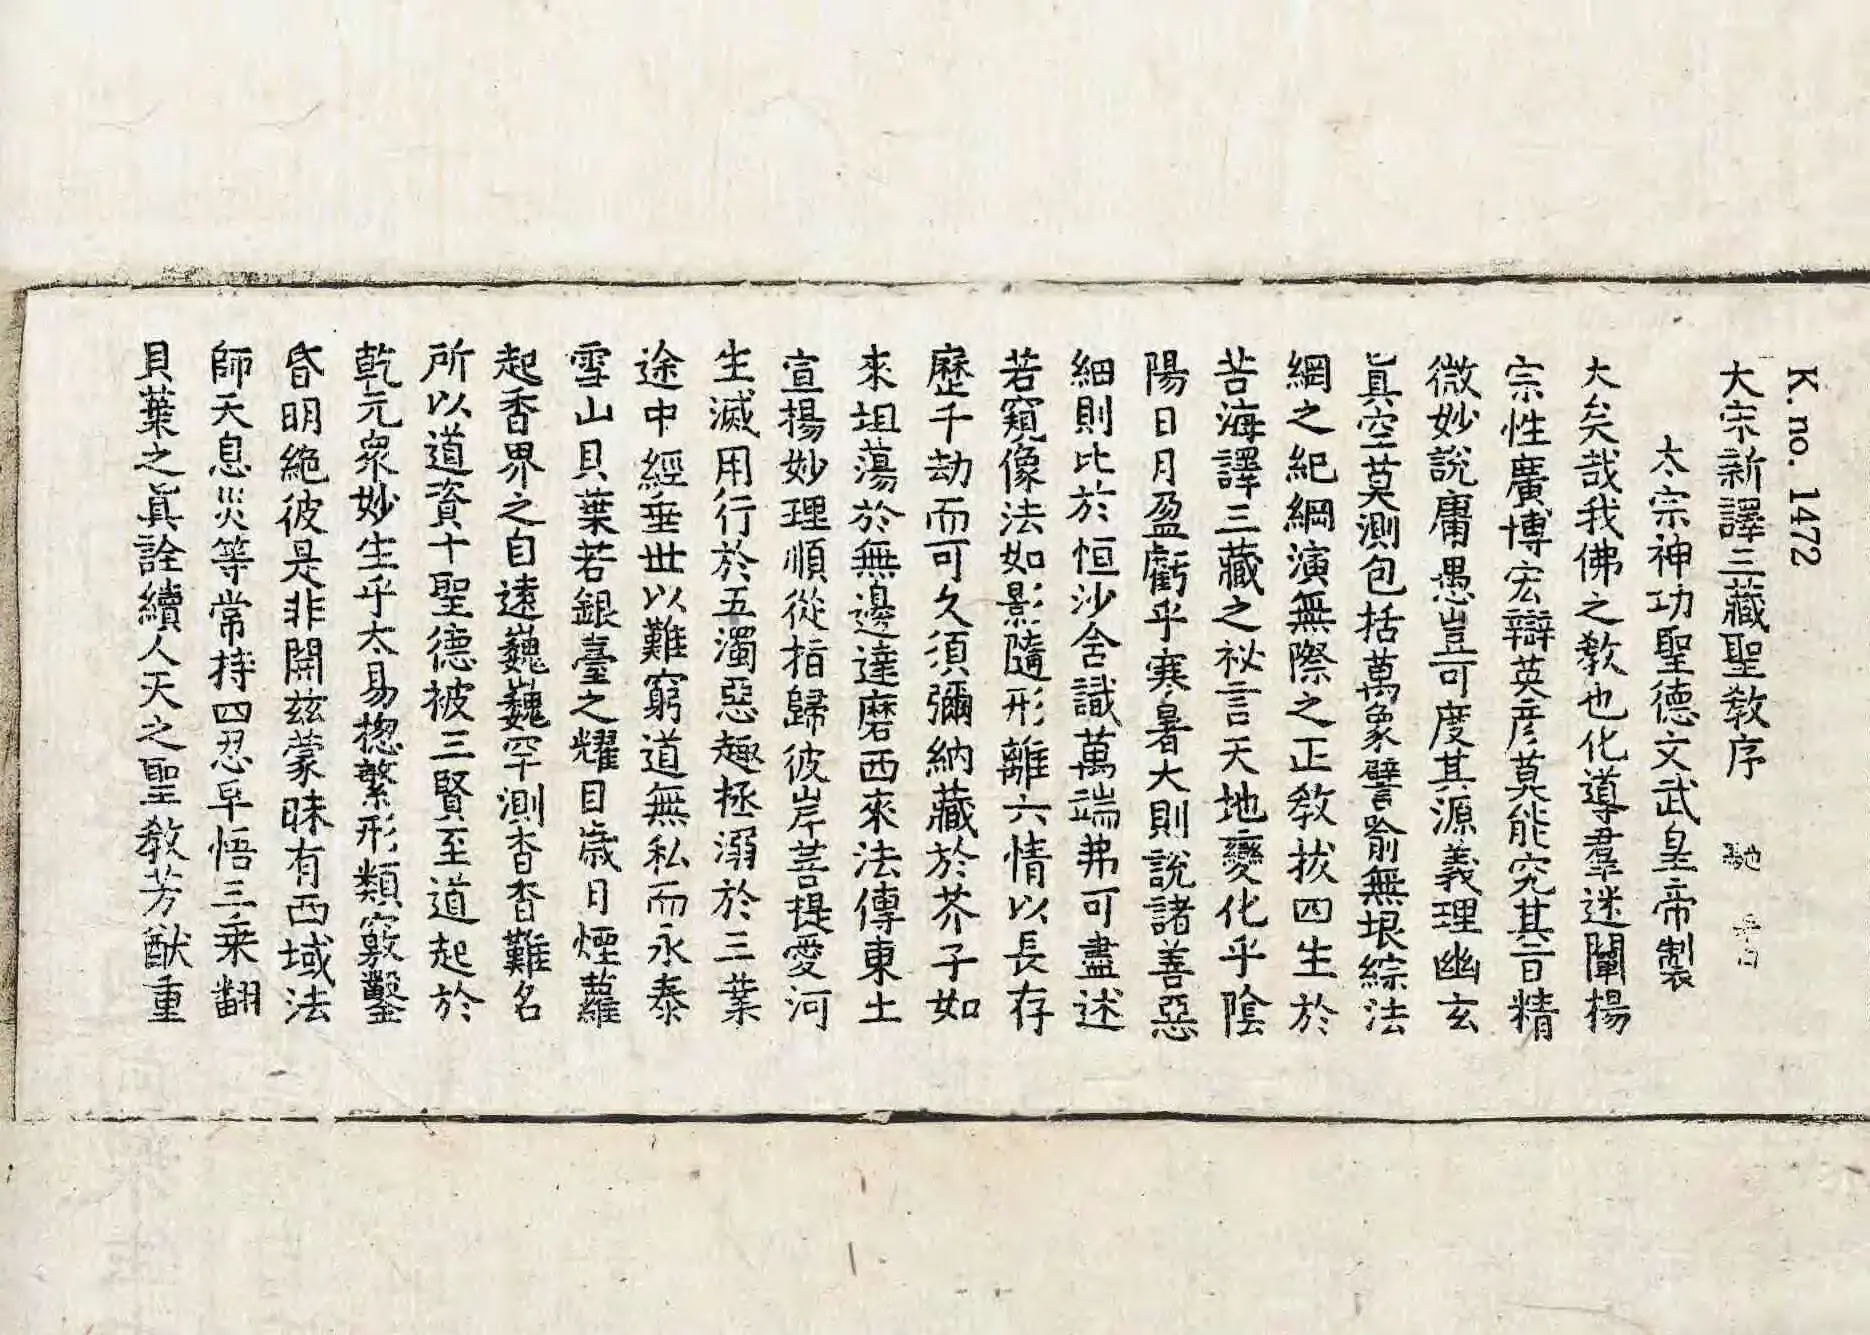 K. no. 1472
大宋新譯三藏聖教序 馳
太宗神功聖德文武皇帝製
大矣哉我佛之教也化導羣迷闡揚
宗性廣博宏辯英彦莫能究其旨精
微妙說庸愚豈可度其源義理幽玄
真空莫測包括萬象譬喻無垠綜法
網之紀綱演無際之正教拔四生於
苦海譯三藏之祕言天地變化乎陰
陽日月盈虧乎寒暑大則說諸善惡
細則比於恒沙含識萬端弗可盡述
若窺像法如影隨形離六情以長存
歷千劫而可久須彌納藏於芥子如
來坦蕩於無邊達磨西來法傳東土
宣揚妙理順從指歸彼岸菩提愛河
生滅用行於五濁惡趣拯溺於三業
途中經垂世以難窮道無私而永泰
雪山貝葉若銀臺之耀目歲月煙蘿
起香界之自遠巍巍罕測杳杳難名
所以道資十聖德被三賢至道起於
乾元衆妙生乎太易揔繁形類竅鑿
昏明絶彼是非開兹蒙昧有西域法
師天息災等常持四忍早悟三乘翻
貝葉之真詮續人天之聖教芳猷重